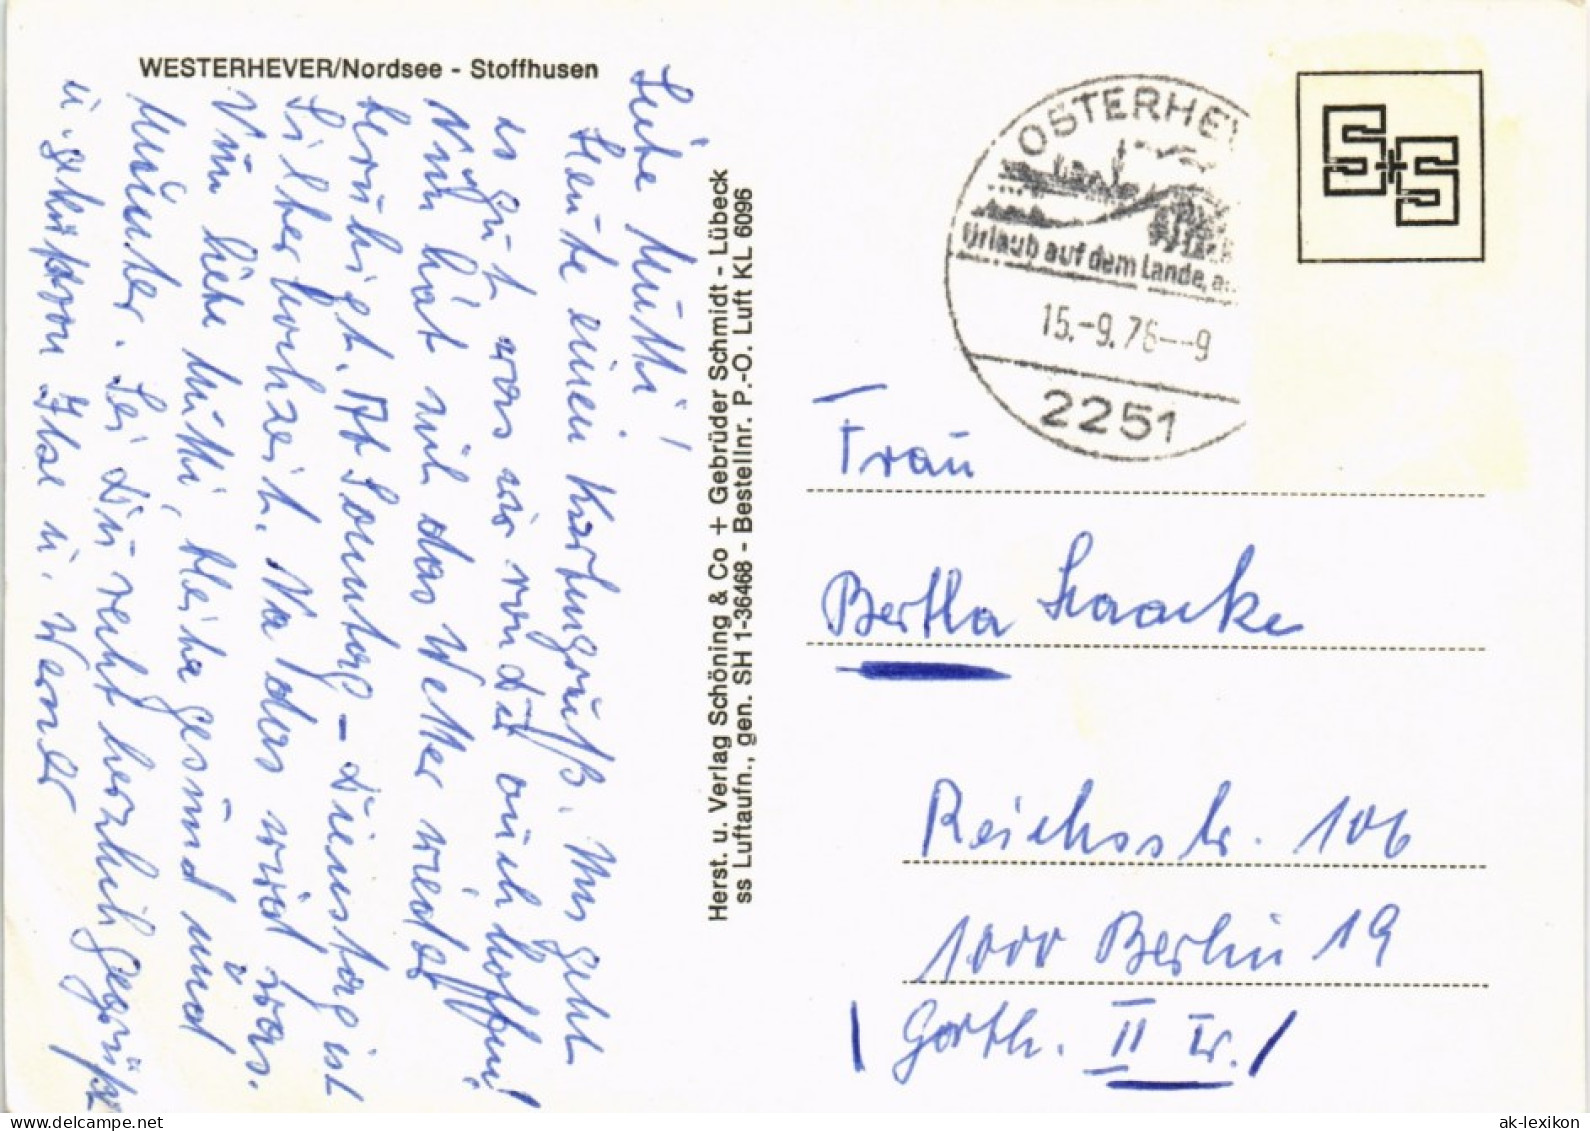 WESTERHEVER/Nordsee - Stoffhusen
Liebe Mutti!
Heute einen Kartengruß. Uns geht
es gut was wir von Dir auch hoffen!
Nun hat sich das Wetter wieder
beruhigt. Ab Sonntag - Dienstag ist
Silberhochzeit. Na das wird was.
Nun liebe Mutti, bleibe gesund und
munter. Sei Du recht herzlich gegrüßt
u. geküßt von Ilse u. Werner
Herst. u. Verlag Schöning & Co + Gebrüder Schmidt - Lübeck
ss Luftaufn., gen. SH 1-36468 - Bestellnr. P.-O. Luft KL 6096
OSTERHEV
Urlaub auf dem Lande, a
15.-9.76--9
2251
S+S
Frau
Bertha Haacke
Reichsstr. 106
1000 Berlin 19
/ Garth. II Tr. /
ak-lexikon